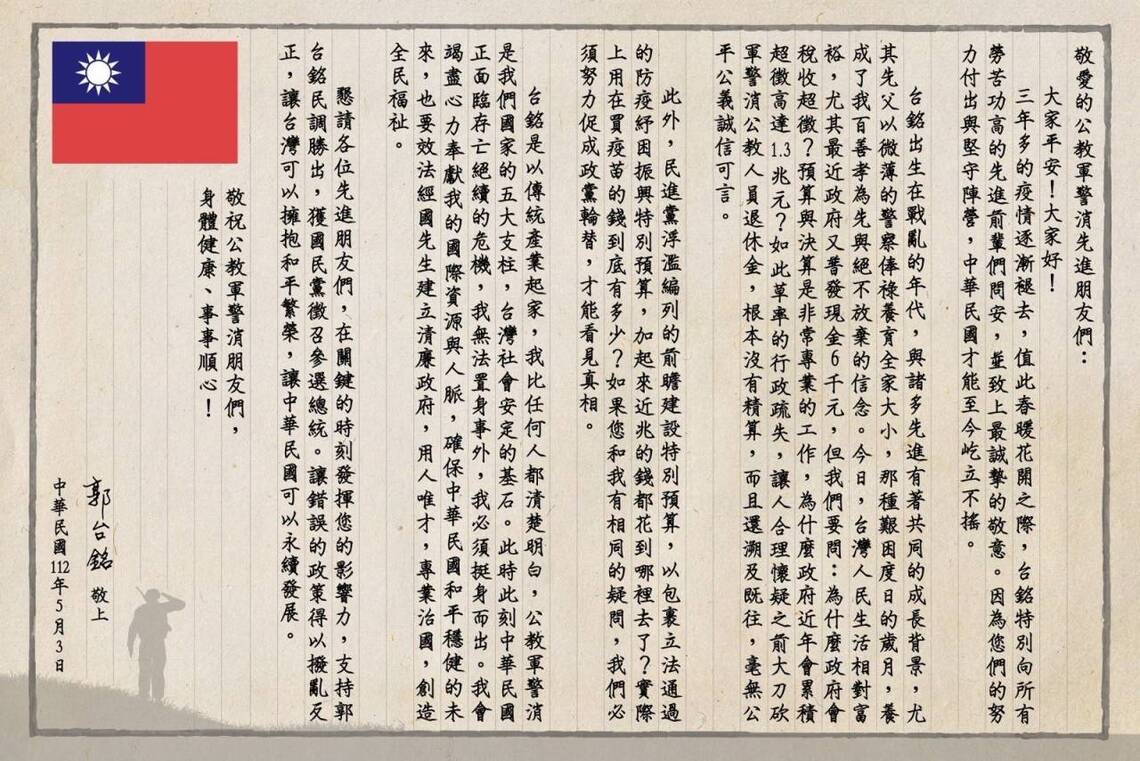 敬愛的公教軍警消先進朋友們：
大家平安！大家好！
三年多的疫情逐漸褪去，值此春暖花開之際，台銘特別向所有
勞苦功高的先進前輩們問安，並致上最誠摯的敬意。因為您們的努
力付出與堅守陣營，中華民國才能至今屹立不搖。
台銘出生在戰亂的年代，與諸多先進有著共同的成長背景，尤
其先父以微薄的警察俸祿養育全家大小，那種艱困度日的歲月，養
成了我百善孝為先與絕不放棄的信念。今日，台灣人民生活相對富
裕，尤其最近政府又普發現金6千元，但我們要問：為什麼政府會
稅收超徵？預算與決算是非常專業的工作，為什麼政府近年會累積
超徵高達1.3兆元？如此草率的行政疏失，讓人合理懷疑之前大刀砍
軍警消公教人員退休金，根本沒有精算，而且還溯及既往，毫無公
平公義誠信可言。
此外，民進黨浮濫編列的前瞻建設特別預算，以包裹立法通過
的防疫紓困振興特別預算，加起來近兆的錢都花到哪裡去了？實際
上用在買疫苗的錢到底有多少？如果您和我有相同的疑問，我們必
須努力促成政黨輪替，才能看見真相。
台銘是以傳統產業起家，我比任何人都清楚明白，公教軍警消
是我們國家的五大支柱，台灣社會安定的基石。此時此刻中華民國
正面臨存亡絕續的危機，我無法置身事外，我必須挺身而出。我會
竭盡心力奉獻我的國際資源與人脈，確保中華民國和平穩健的未
來，也要效法經國先生建立清廉政府，用人唯才，專業治國，創造
全民福祉。
懇請各位先進朋友們，在關鍵的時刻發揮您的影響力，支持郭
台銘民調勝出，獲國民黨徵召參選總統。讓錯誤的政策得以撥亂反
正，讓台灣可以擁抱和平繁榮，讓中華民國可以永續發展。
敬祝公教軍警消朋友們，
身體健康、事事順心！
郭台銘 敬上
中華民國112年5月3日